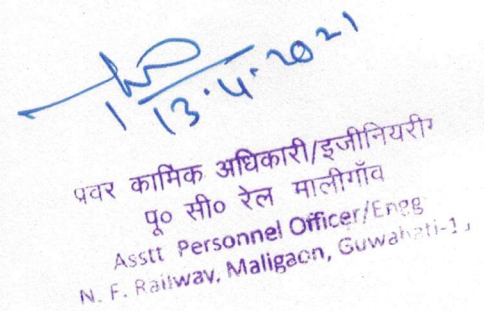 13.4.2021
प्रवर कार्मिक अधिकारी/इजीनियरी
पू० सी० रेल मालीगाँव
Asstt Personnel Officer/Engg
N. F. Railway, Maligaon, Guwahati-1